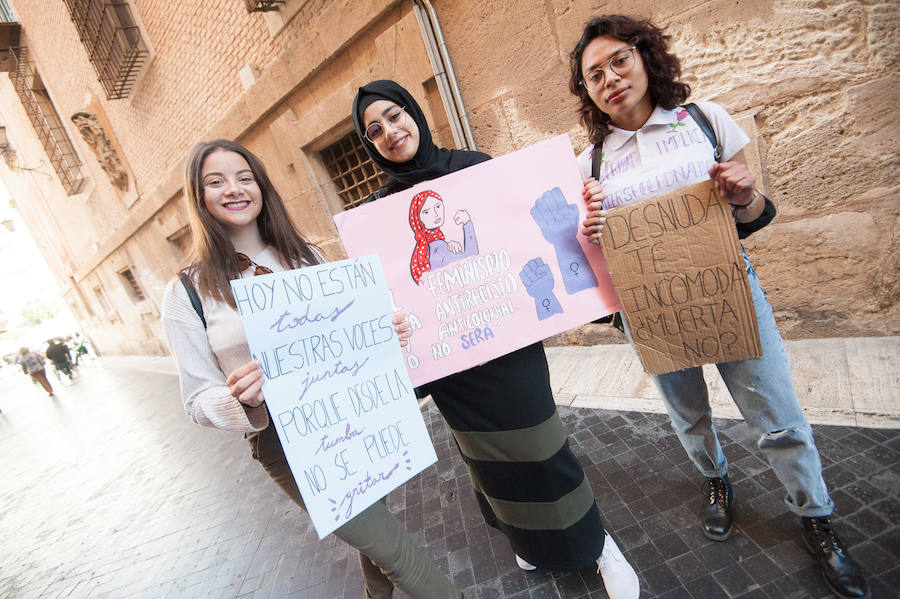 HOY NO ESTÁN
todas
NUESTRAS VOCES
juntas
PORQUE DESDE LA
tumba
NO SE PUEDE
gritar
FEMINISMO
ANTIRACISTA
ANTICOLONIAL
O NO SERÁ
IMPLICA
INTERSECCIONALIDAD
DESNUDA
TE
INCOMODA
¿MUERTA
NO?